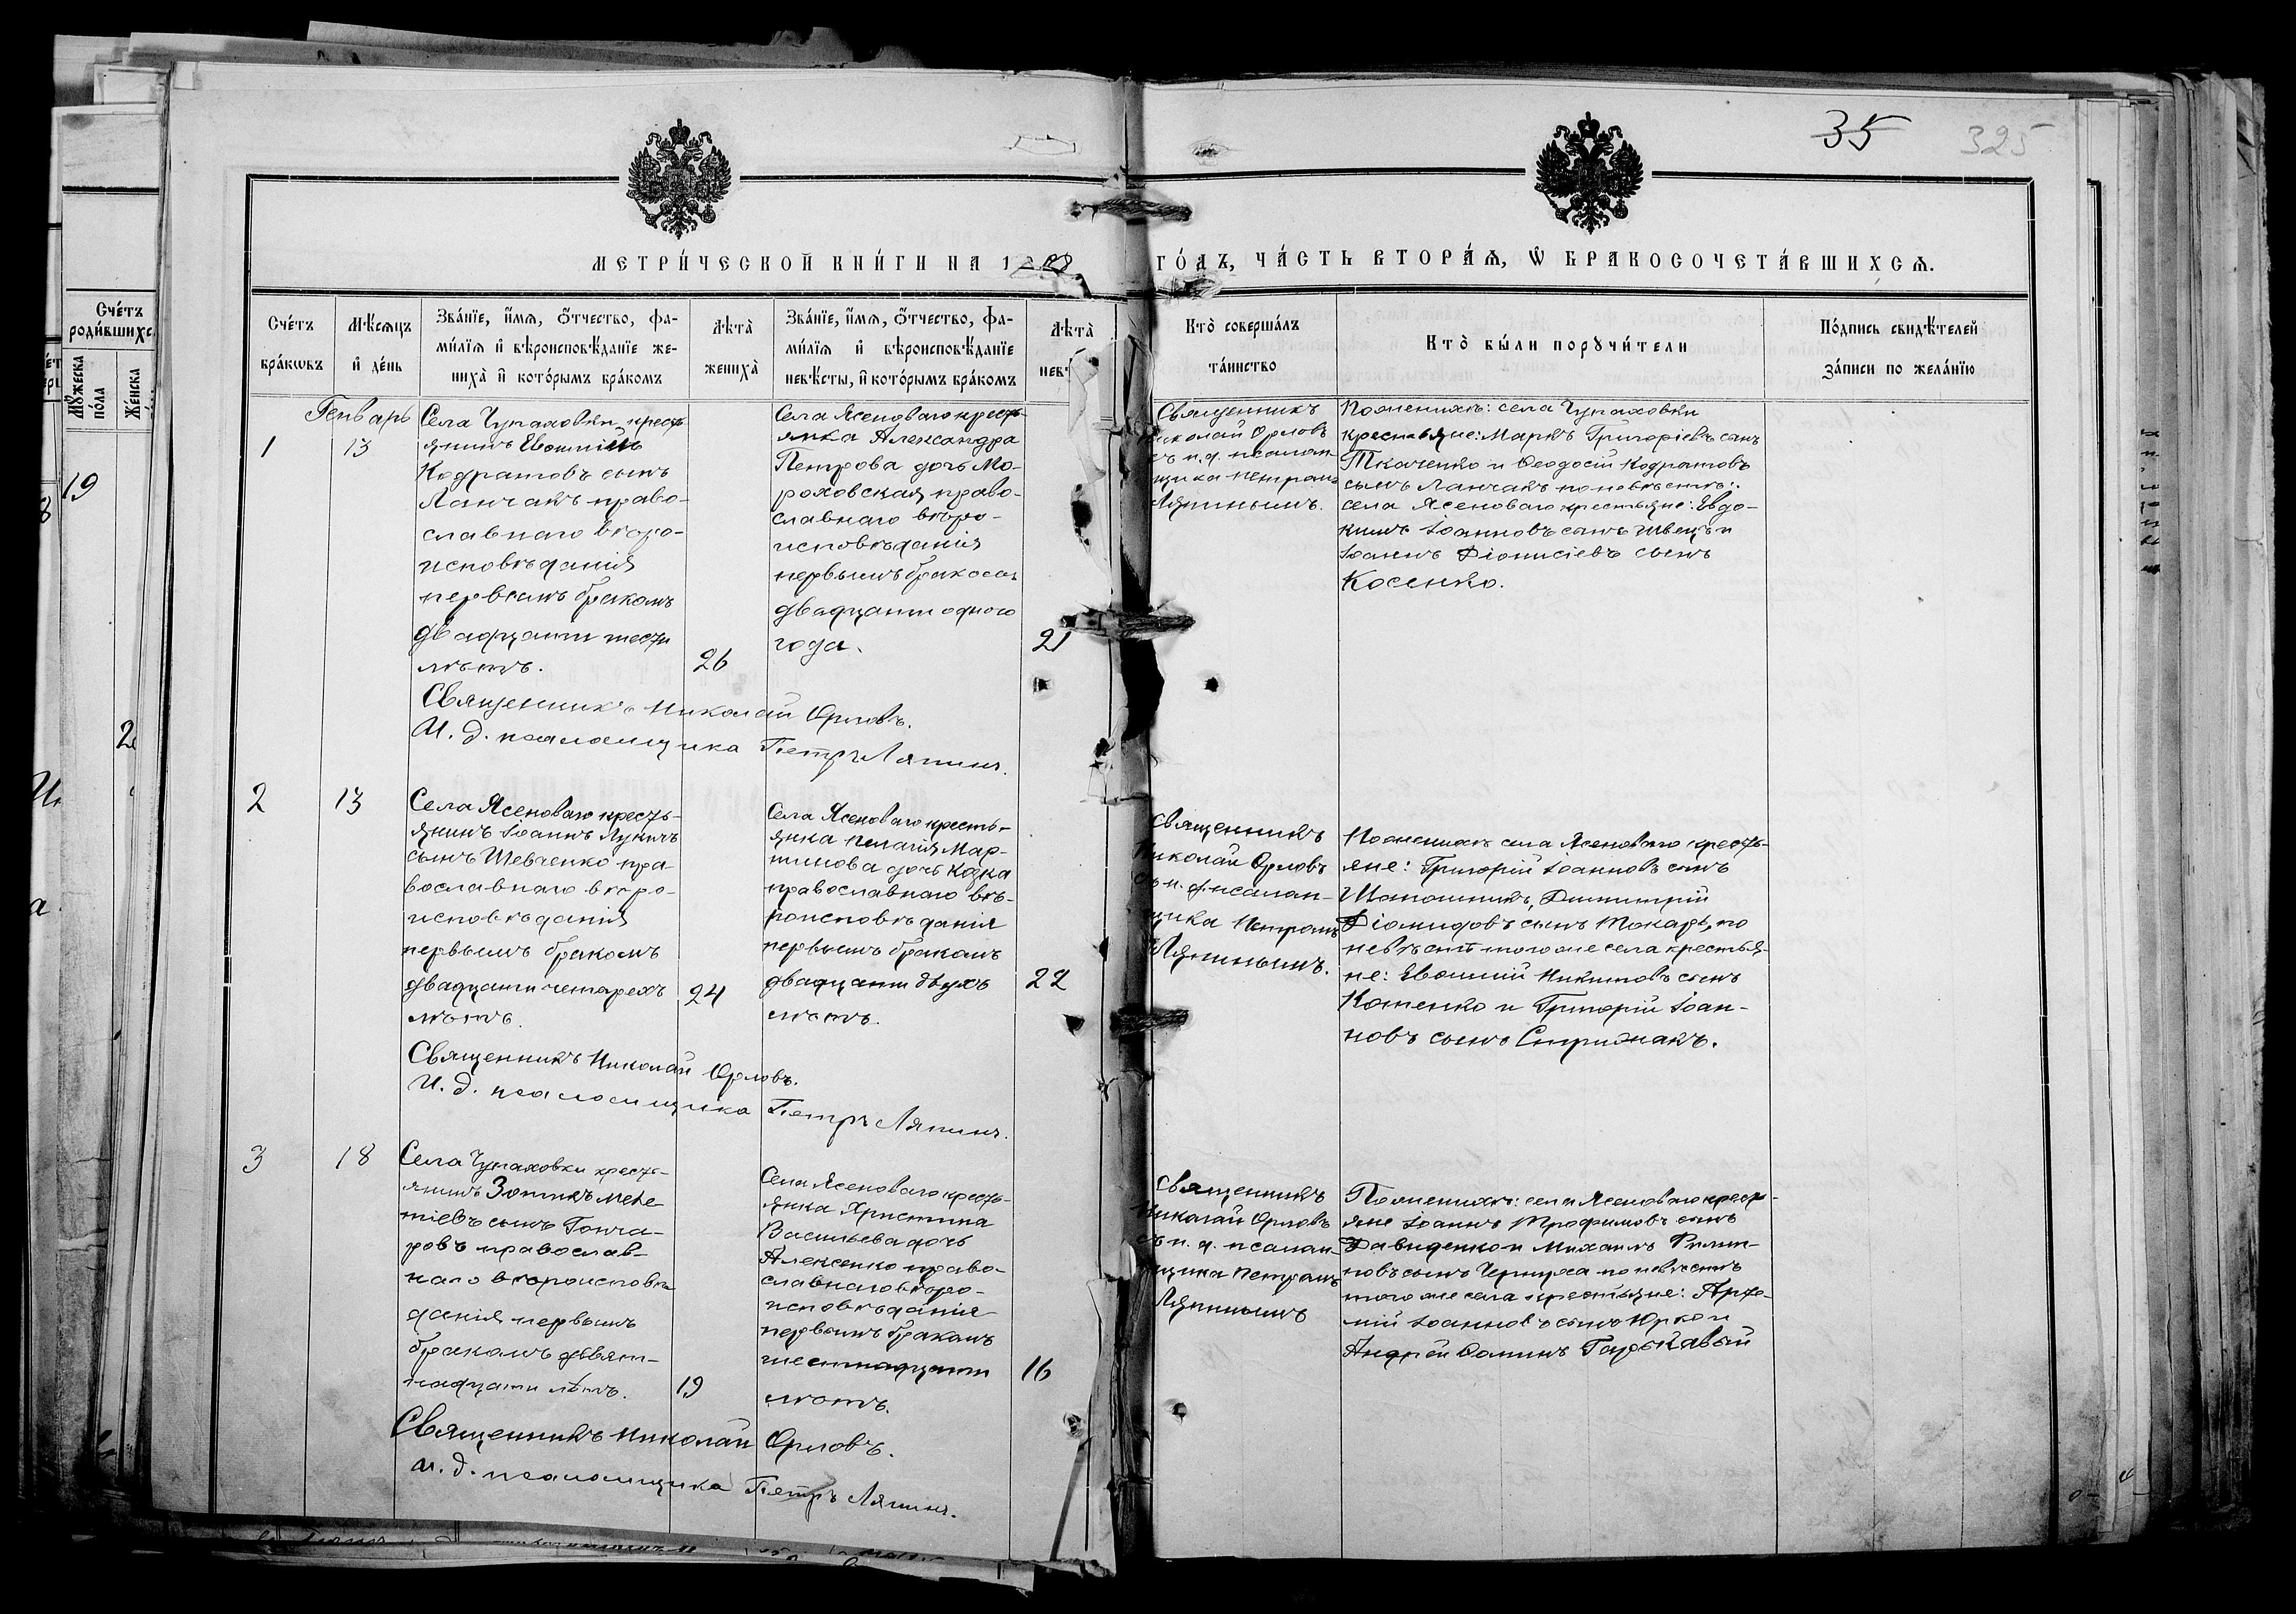 35 325
МЕТРИ́ЧЕСКОЙ КНИ́ГИ НА 1908 ГО́ДЪ, ЧА́СТЬ ВТОРА́Ѧ, Ѡ҆ БРАКОСОЧЕТА́ВШИХСѦ.
Сче́тъ бра́кѡвъ
Мѣ́сѧцъ и҆ де́нь
Зва́нїе, и҆́мѧ, ѻ҆́тчество, фа-
ми́лїѧ и҆ вѣроисповѣ́данїе же-
ниха̀ и҆ кото́рымъ бра́комъ
Лѣ́та̀ жениха̀
Зва́нїе, и҆́мѧ, ѻ҆́тчество, фа-
ми́лїѧ и҆ вѣроисповѣ́данїе
невѣ́сты, и҆ кото́рымъ бра́комъ
Лѣ́та̀ нев
Кто̀ соверша́лъ
та́инство
Кто̀ бы́ли порꙋчи́тели
По́дпись свидѣ́телей
за́писи по жела́нїю
Сче́тъ
роди́вшихс
Мꙋ́жеска по́ла
Же́нска
19
Генварь
1
13
Села Чупаховки кресть
янинъ Евѳимій
Кодратовъ сынъ
Ланчакъ право-
славнаго вѣро-
исповѣданія
первымъ бракомъ
двадцати шести
лѣтъ.
26
Села Ясеноваго кресть
янка Александра
Петрова дочь Мо-
роховская право-
славнаго вѣро-
исповѣданія
первымъ бракомъ
двадцати одного
года.
21
Священникъ
Николай Орловъ
съ и. д. псалом-
щика Петромъ
Ляпинымъ.
По женихѣ: села Чупаховки
крестьяне: Маркъ Григоріевъ сынъ
Ткаченко и Ѳеодосій Кодратовъ
сынъ Ланчакъ по невѣстѣ:
села Ясеноваго крестьяне: Евдо-
кимъ Іоанновъ сынъ Швецъ и
Іоаннъ Діонисіевъ сынъ
Косенко.
Священникъ Николай Орловъ.
И. д. псаломщика Петръ Ляпинъ.
2
13
Села Ясеноваго кресть-
янинъ Іоаннъ Лукичъ
сынъ Шевченко пра-
вославнаго вѣро-
исповѣданія
первымъ бракомъ
двадцати четырехъ
лѣтъ.
24
Села Ясеноваго кресть-
янка Пелагія Мар-
тинова дочь Козка
православнаго вѣ-
роисповѣданія
первымъ бракомъ
двадцати двухъ
лѣтъ.
22
Священникъ
Николай Орловъ
съ и. д. псалом-
щика Петромъ
Ляпинымъ.
По женихѣ села Ясеноваго кресть-
яне: Григорій Іоанновъ сынъ
Димитрій
Діомидовъ сынъ Токарь, по
невѣстѣ того же села крестья-
не: Евѳимій Никитовъ сынъ
Котенко и Григорій Іоан-
новъ сынъ Стрижакъ.
Священникъ Николай Орловъ.
И. д. псаломщика Петръ Ляпинъ.
3
18
Села Чупаховки кресть-
янинъ Зотикъ Меле
тіевъ сынъ Гонча-
ровъ православ-
наго вѣроисповѣ
данія первымъ
бракомъ девят-
надцати лѣтъ.
19
Села Ясеноваго кресть-
янка Христина
Васильева дочь
Алексенко право-
славнаго вѣро-
исповѣданія
первымъ бракомъ
шестнадцати
лѣтъ.
16
Священникъ
Николай Орловъ
съ и. д. псалом-
щика Петромъ
Ляпинымъ
По женихѣ: села Ясеноваго кресть-
яне Іоаннъ Трофимовъ сынъ
Давиденко и Михаилъ Филип-
повъ сынъ по невѣстѣ
того же села крестьяне: Арте-
мій Іоанновъ сынъ Юрко и
Андрей Ѳоминъ Гаркавый
Священникъ Николай Орловъ.
И. д. псаломщика Петръ Ляпинъ.